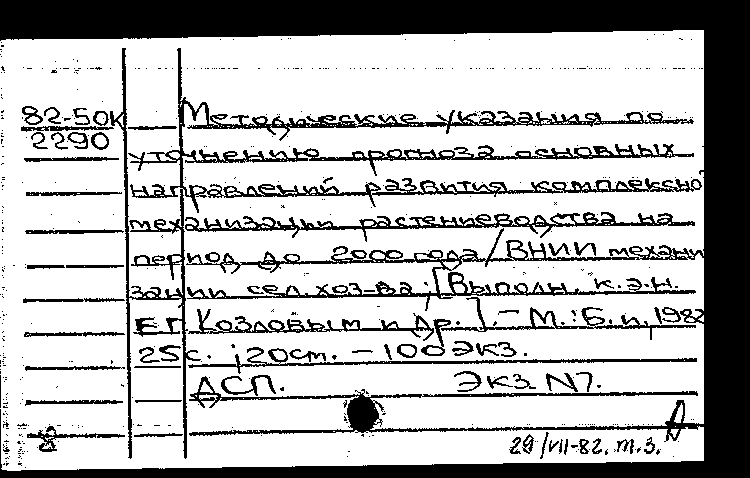 82-50К Методические указания по
2290 уточнению прогноза основных
направлений развития комплексно
механизации растениеводства на
период до 2000 года / ВНИИ механи
зации сел. хоз-ва; [Выполн. к.э.н.
Е.Г. Козловым и др.]. - М.: Б. и., 1982
25 с. ; 20 см. - 100 экз.
ДСП. Экз. N7.
29/VII-82. т.з.